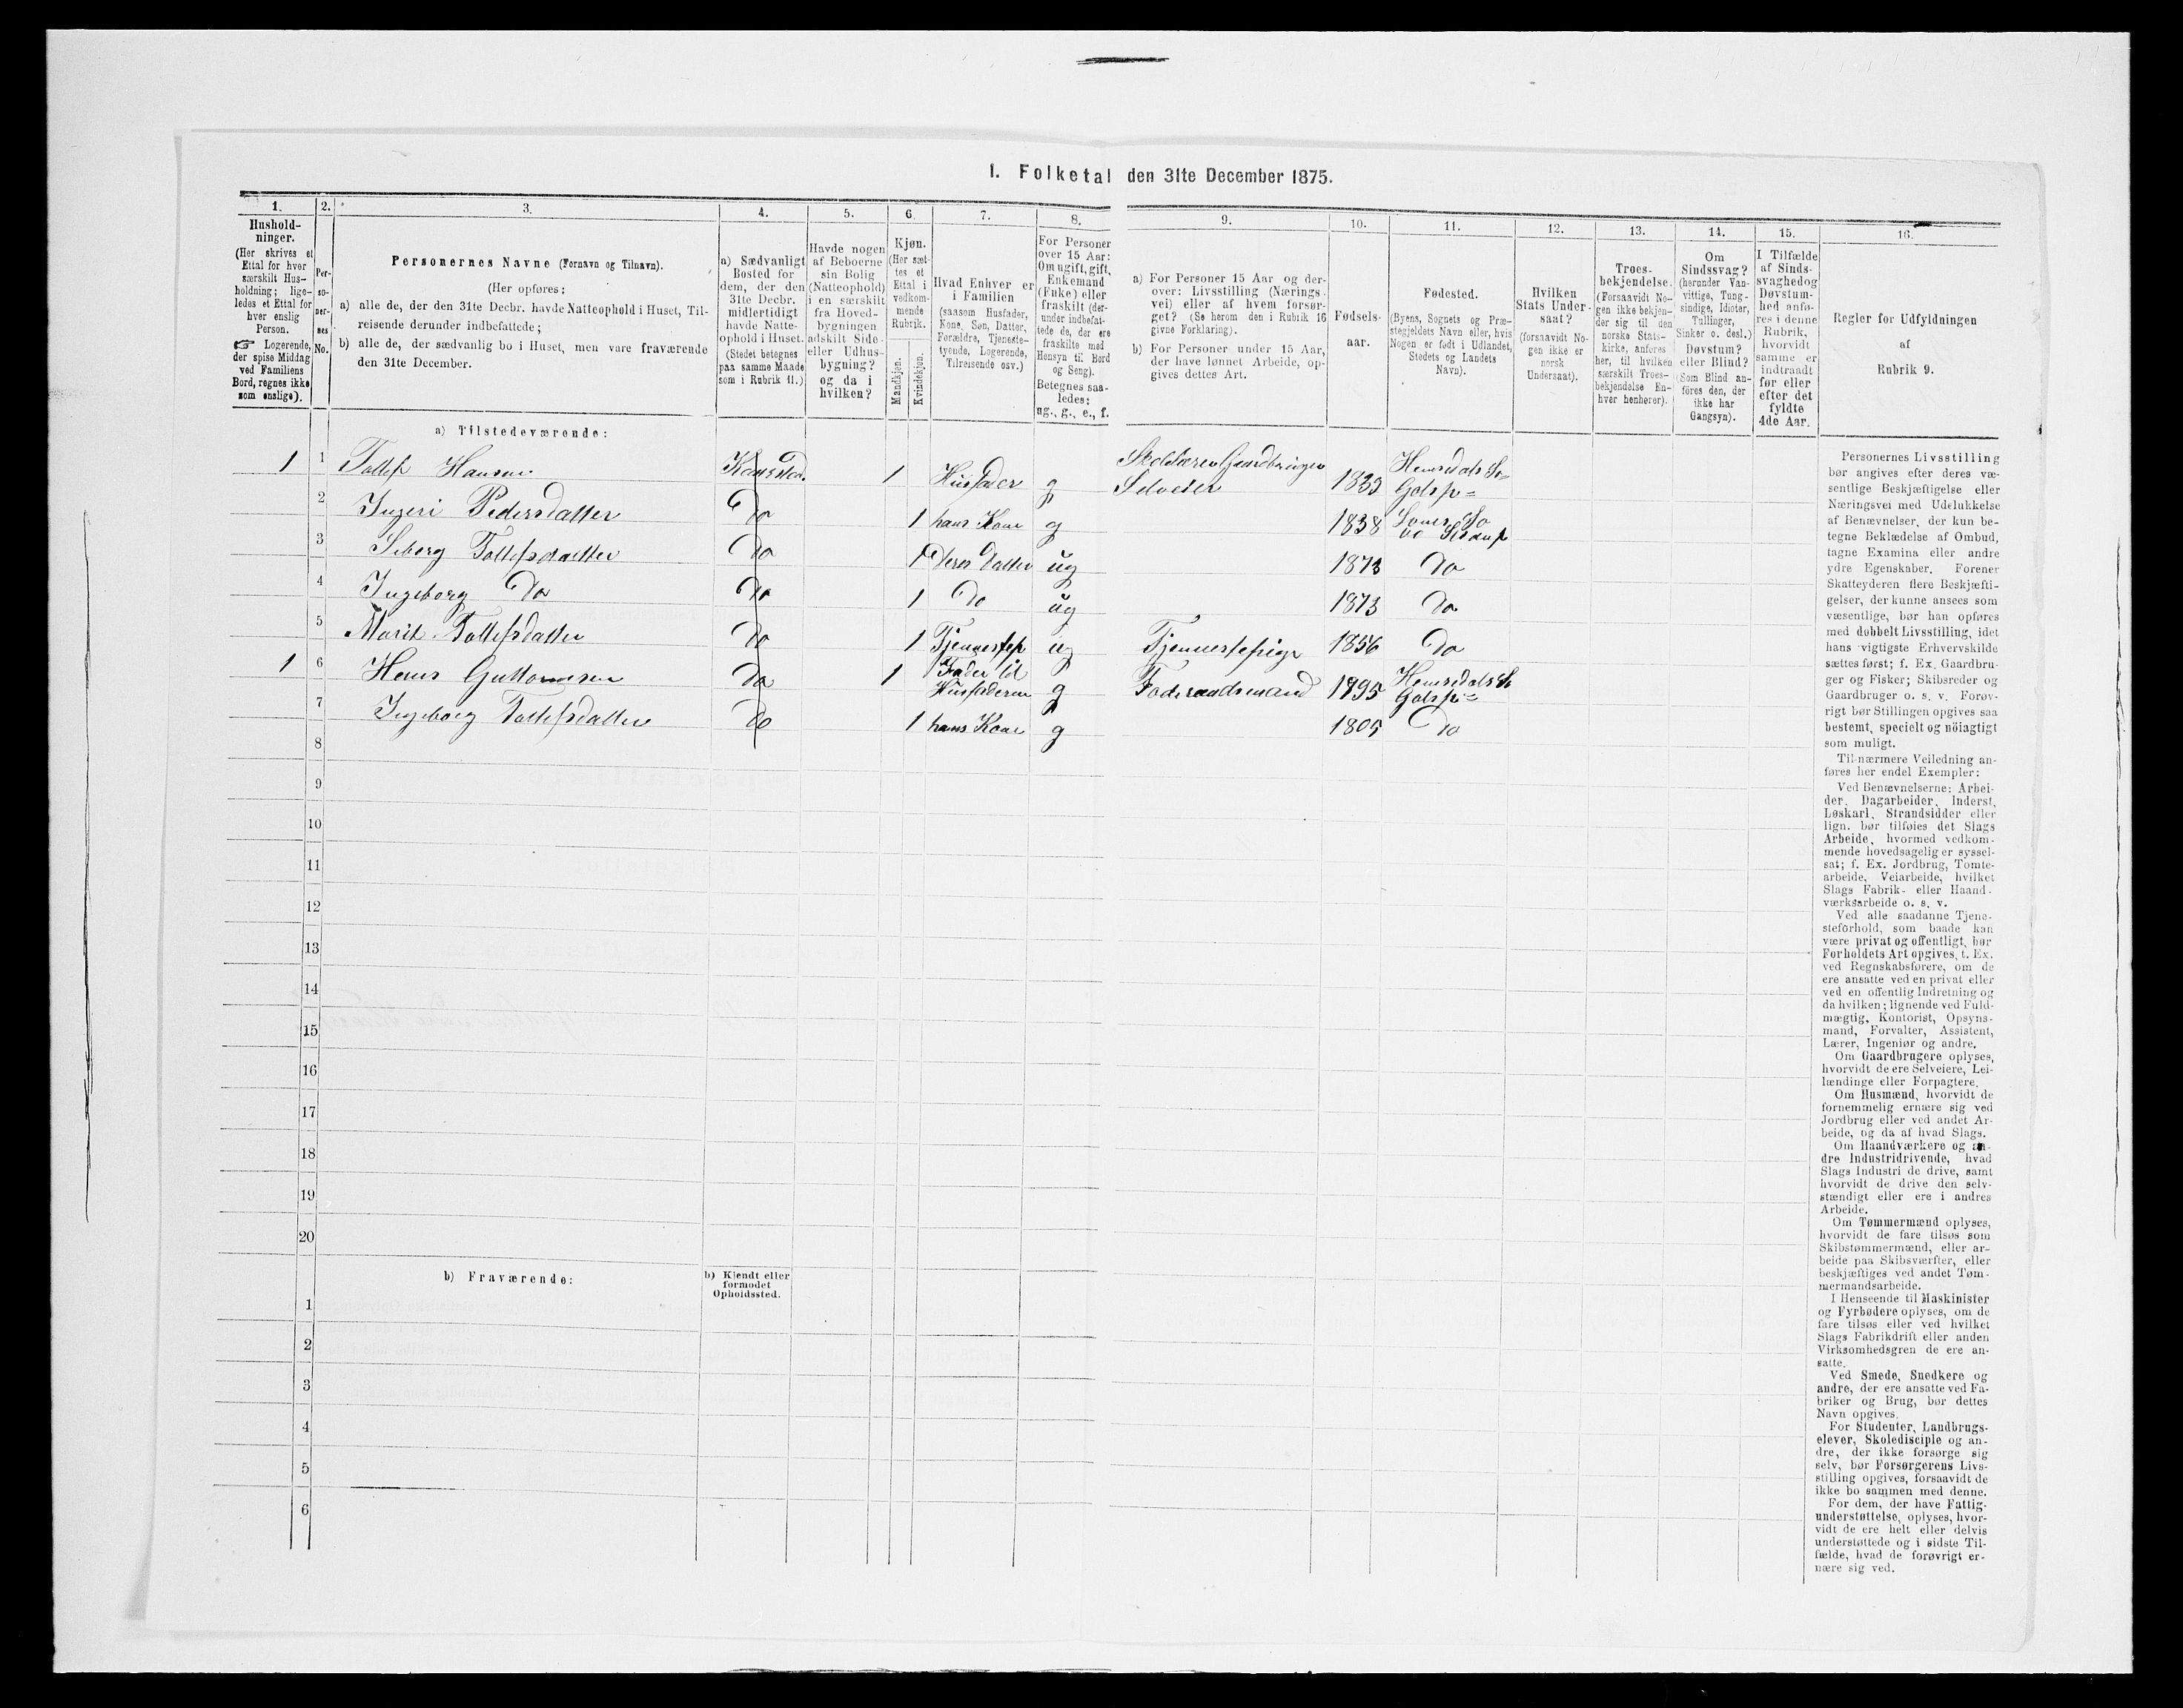 1. Folketal den 31te December 1875.
1. 2. 3. 4. 5. 6. 7. 8. 9. 10. 11. 12. 13. 14. 15. 16.
Hushold-
ninger.
(Her skrives et
Ettal for hver
særskilt Hus-
holdning; lige-
ledes et Ettal for
hver enslig
Person.
☞ Logerende,
der spise Middag
ved Familiens
Bord, regnes ikke
som enslige).
Per-
so-
ner-
nes
No.
Personernes Navne (Fornavn og Tilnavn).
(Her opføres:
a) alle de, der den 31te Decbr. havde Natteophold i Huset, Til-
reisende derunder indbefattede;
b) alle de, der sædvanlig bo i Huset, men vare fraværende
den 31te December.
a) Sædvanligt
Bosted for
dem, der den
31te Decbr.
midlertidigt
havde Natte-
ophold i Huset.
(Stedet betegnes
paa samme Maade
som i Rubrik 11.)
Havde nogen
af Beboerne
sin Bolig
(Natteophold)
i en særskilt
fra Hoved-
bygningen
adskilt Side-
eller Udhus-
bygning?
og da i
hvilken?
Kjøn.
(Her sæt-
tes et
Ettal i
vedkom-
mende
Rubrik.
Mandkjøn.
Kvindekjøn.
Hvad Enhver er
i Familien
(saasom Husfader,
Kone, Søn, Datter,
Forældre, Tjeneste-
tyende, Logerende,
Tilreisende osv.)
For Personer
over 15 Aar:
Om ugift, gift,
Enkemand
(Enke) eller
fraskilt (der-
under indbefat-
tede de, der ere
fraskilte med
Hensyn til Bord
og Seng).
Betegnes saa-
ledes:
ug., g., e., f.
a) For Personer 15 Aar og der-
over: Livsstilling (Nærings-
vei) eller af hvem forsør-
get? (Se herom den i Rubrik 16
givne Forklaring).
b) For Personer under 15 Aar,
der have lønnet Arbeide, op-
gives dettes Art.
Fødsels-
aar.
Fødested.
(Byens, Sognets og Præ-
stegjeldets Navn eller, hvis
Nogen er født i Udlandet,
Stedets og Landets
Navn).
Hvilken
Stats Under-
saat?
(forsaavidt No-
gen ikke er
norsk
Undersaat).
Troes-
bekjendelse.
(Forsaavidt No-
gen ikke bekjen-
der sig til den
norske Stats-
kirke, anføres
her, til hvilken
særskilt Troes-
bekjendelse En-
hver henhører).
Om
Sindssvag?
(herunder Van-
vittige, Tung-
sindige, Idioter,
Tullinger,
Sinker o. desl.)
Døvstum?
eller Blind?
(Som Blind an-
föres den, der
ikke har
Gangsyn).
I Tilfælde
af Sinds-
svaghed og
Døvstum-
hed anfø-
res i denne
Rubrik,
hvorvidt
samme er
indtraadt
før eller
efter det
fyldte
4de Aar.
Regler for Udfyldningen
af
Rubrik 9.
a) Tilstedeværende:
1 1 Tollef Hansen 1 Husfader g Selveier 1833
2 Ingeri Pedersdatter Do 1 hans Kone g 1838
3 Tollefsdatter Do 1 Deres Datter ug 1873 Do
4 Ingeborg Do Do 1 Do ug 1873 Do
5 Marit Tollefsdatter Do 1 ug 1856 Do
1 6 Guttormsen Do 1 Fader til
Husfaderen g Foderaadsmand 1795
7 Ingeborg Tollefsdatter Do 1 hans Kone g 1805 Do
8
9
10
11
12
13
14
15
16
17
18
19
20
b) Fraværende:
b) Kjendt eller
formodet
Opholdssted.
1
2
3
4
5
6
Personernes Livsstilling
bør angives efter deres væ-
sentlige Beskjæftigelse eller
Næringsvei med Udelukkelse
af Benævnelser, der kun be-
tegne Beklædelse af Ombud,
tagne Examina eller andre
ydre Egenskaber. Forener
Skatteyderen flere Beskjæfti-
gelser, der kunne ansees som
væsentlige, bør han opføres
med dobbelt Livsstilling, idet
hans vigtigste Erhvervskilde
sættes først; f. Ex. Gaardbru-
ger og Fisker; Skibsreder og
Gaardbruger o. s. v. Forøv-
rigt bør Stillingen opgives saa
bestemt, specielt og nöiagtigt
som muligt.
Til nærmere Veiledning an-
føres her endel Exempler:
Ved Benævnelserne: Arbei-
der, Dagarbeider, Inderst,
Løskarl, Strandsidder eller
lign. bør tilføies det Slags
Arbeide, hvormed vedkom-
mende hovedsagelig er syssel-
sat; f. Ex. Jordbrug, Tomte-
arbeide, Veiarbeide, hvilket
Slags Fabrik- eller Haand-
værksarbeide o. s. v.
Ved alle saadanne Tjene-
steforhold, som baade kan
være privat og offentligt, bør
Forholdets Art opgives, f. Ex.
ved Regnskabsførere, om de
ere ansatte ved en privat eller
ved en offentlig Indretning og
da hvilken; lignende ved Fuld-
mægtig, Kontorist, Opsyns-
mand, Forvalter, Assistent,
Lærer, Ingeniør og andre.
Om Gaardbrugere oplyses,
hvorvidt de ere Selveiere, Lei-
lændinge eller Forpagtere.
Om Husmænd, hvorvidt de
fornemmelig ernære sig ved
Jordbrug eller ved andet Ar-
beide, og da af hvad Slags.
Om Haandværkere og an-
dre Industridrivende, hvad
Slags Industri de drive, samt
hvorvidt de drive den selv-
stændigt eller ere i andres
Arbeide.
Om Tømmermænd oplyses,
hvorvidt de fare tilsøs som
Skibstømmermænd, eller ar-
beide paa Skibsværfter, eller
beskjæftiges ved andet Tøm-
mermandsarbeide.
I Henseende til Maskinister
og Fyrbødere oplyses, om de
fare tilsøs eller ved hvilket
Slags Fabrikdrift eller anden
Virksomhedsgren de ere an-
satte.
Ved Smede, Snedkere og
andre, der ere ansatte ved Fa-
briker og Brug, bør dettes
Navn opgives.
For Studenter, Landbrugs-
elever, Skoledisciple og an-
dre, der ikke forsørge sig
selv, bør Forsørgerens Livs-
stilling opgives, forsaavidt de
ikke bo sammen med denne.
For dem, der have Fattig-
understøttelse, oplyses, hvor-
vidt de ere helt eller delvis
understøttede og i sidste Til-
fælde, hvad de forøvrigt er-
nære sig ved.